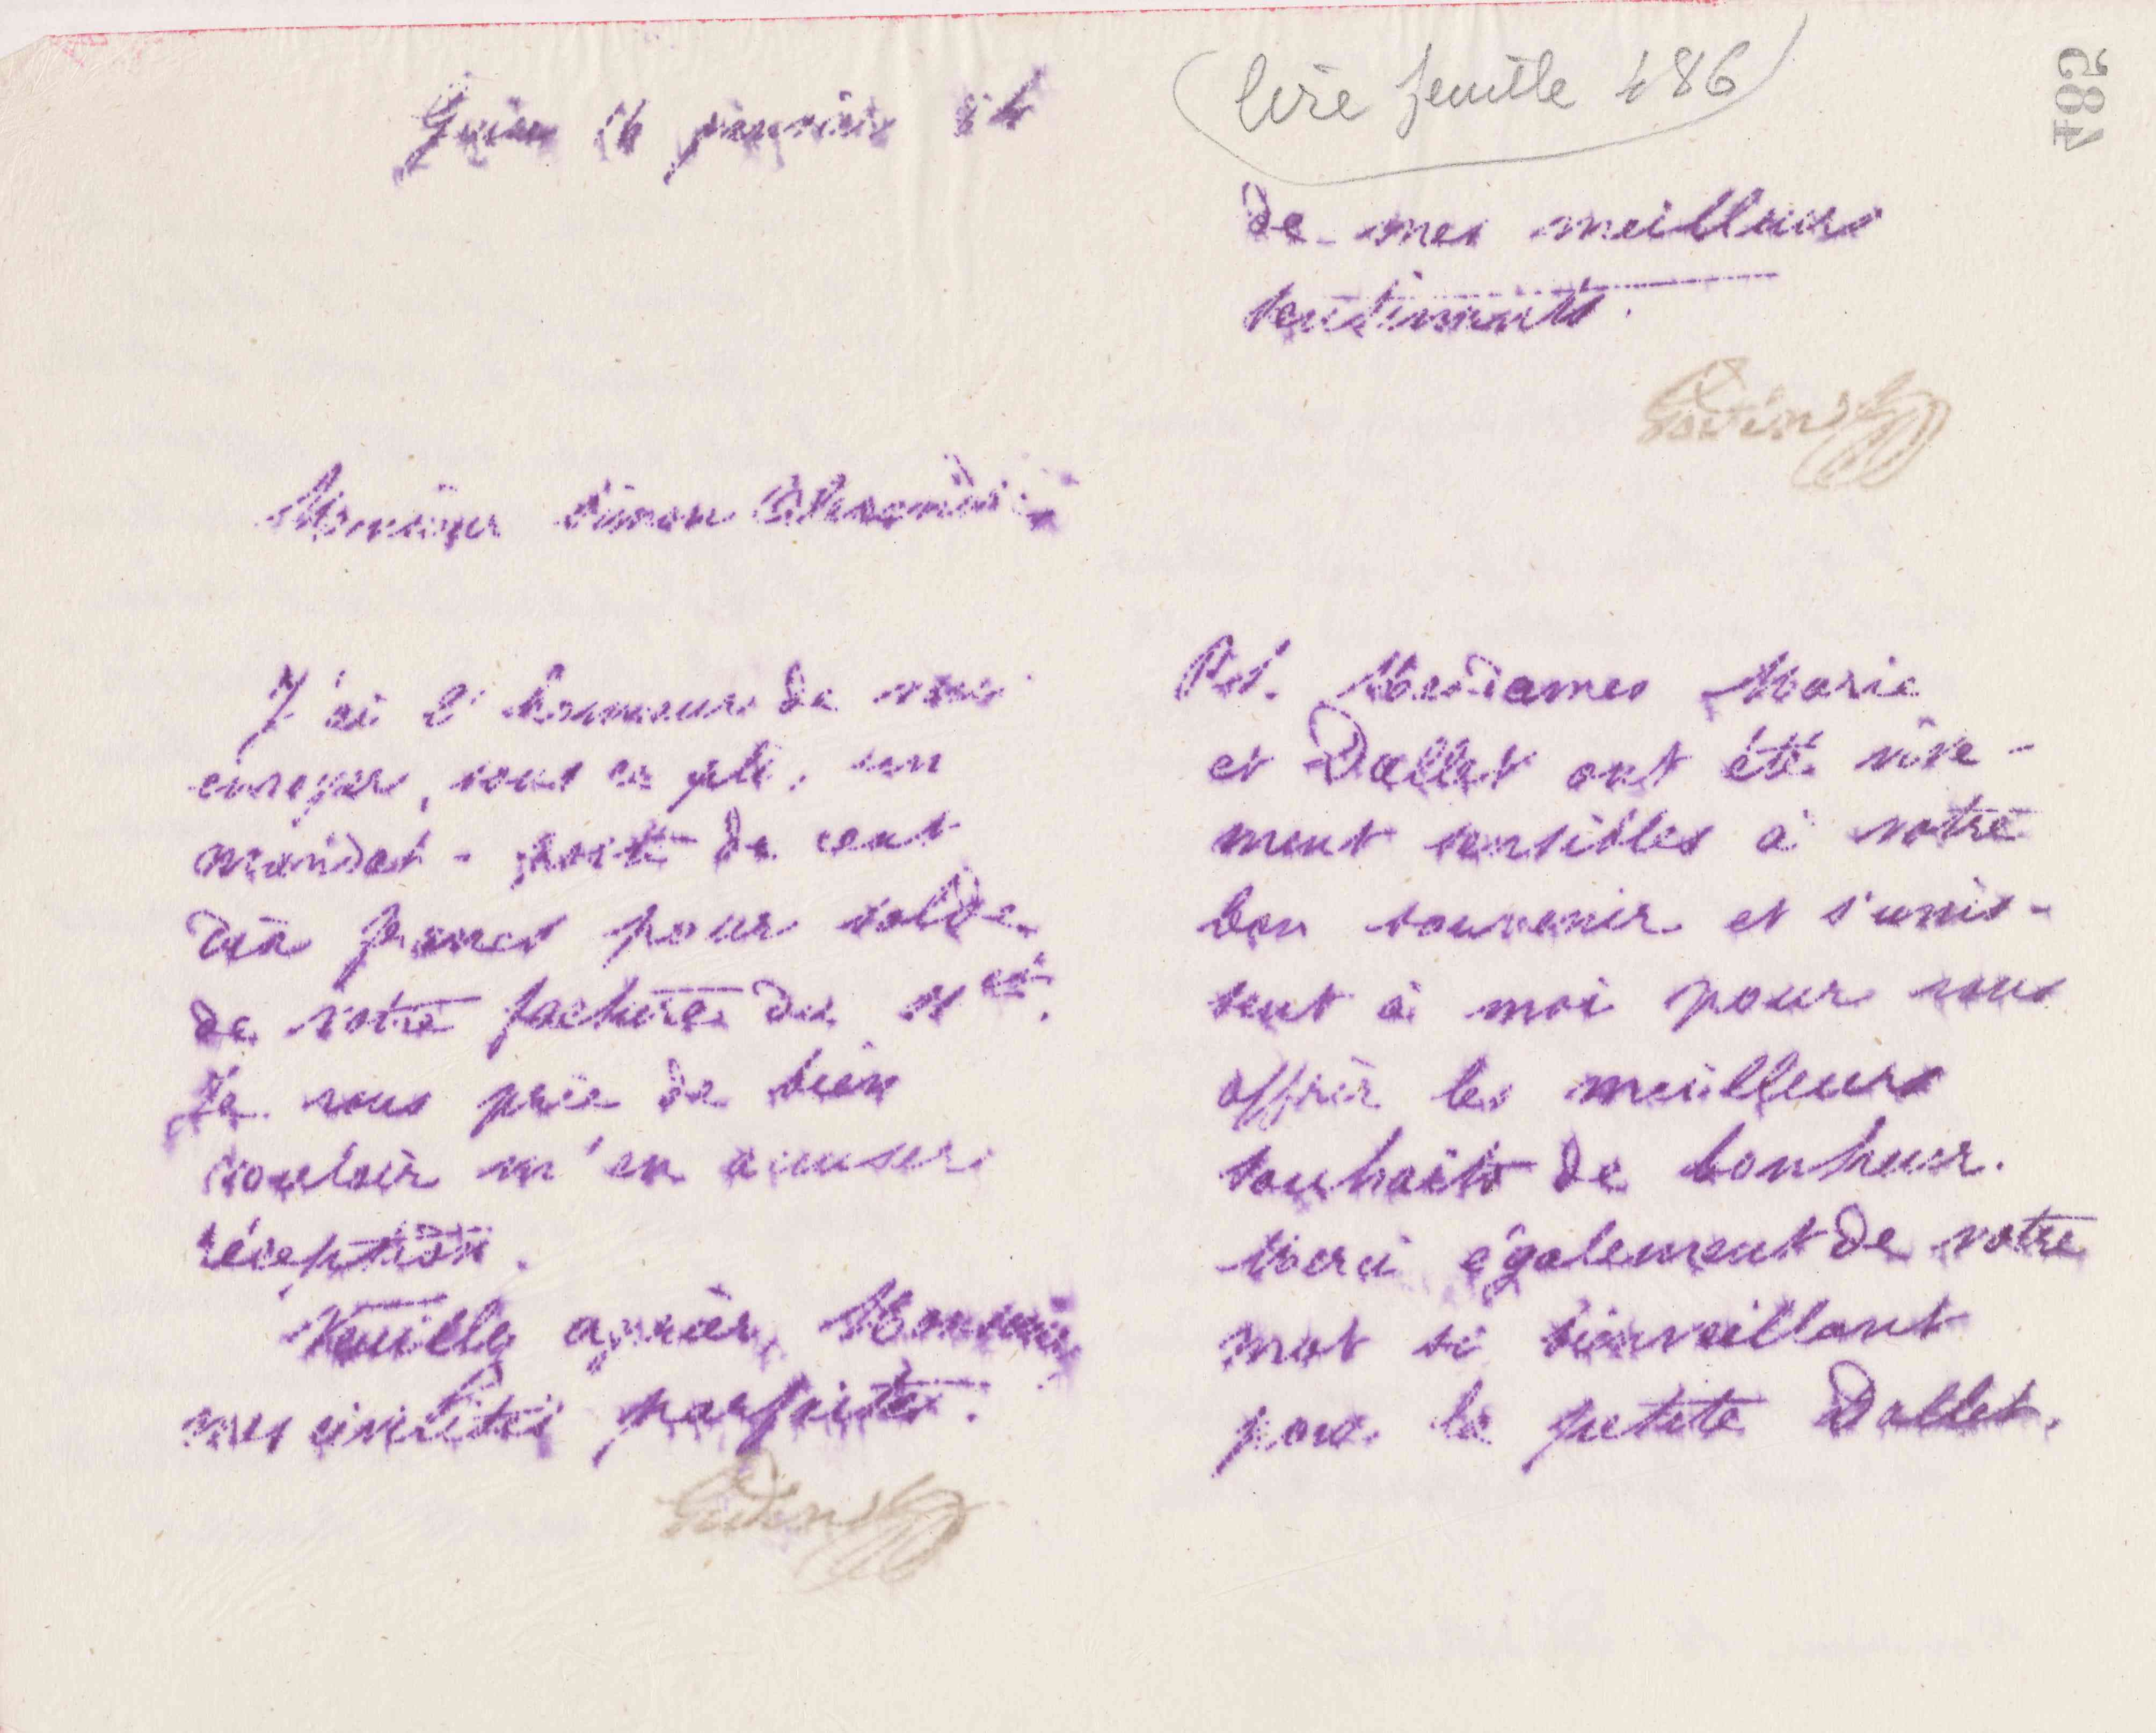 Guise 16 janvier 84
Monsieur Simon
J'ai l'honneur de vous
envoyer, sous ce pli, un
mandat-poste de cent
dix francs pour solde
de votre facture du
Je vous prie de bien
vouloir m'en accuser
réception.
Veuillez agréer, Monsieur,
mes civilités parfaites.
Godin
(lire feuille 486)
485
de mes meilleurs
sentiments.
Godin
P.S. Mesdames Marie
et Dallet ont été vive-
ment sensibles à votre
bon souvenir et s'unis-
sent à moi pour vous
offrir les meilleurs
souhaits de bonheur.
Merci également de votre
mot si bienveillant
pour la petite Dallet.